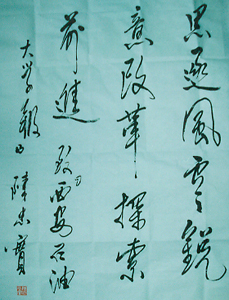 思逐風雲銳
意改革探索
前進 致西安石油
大学報